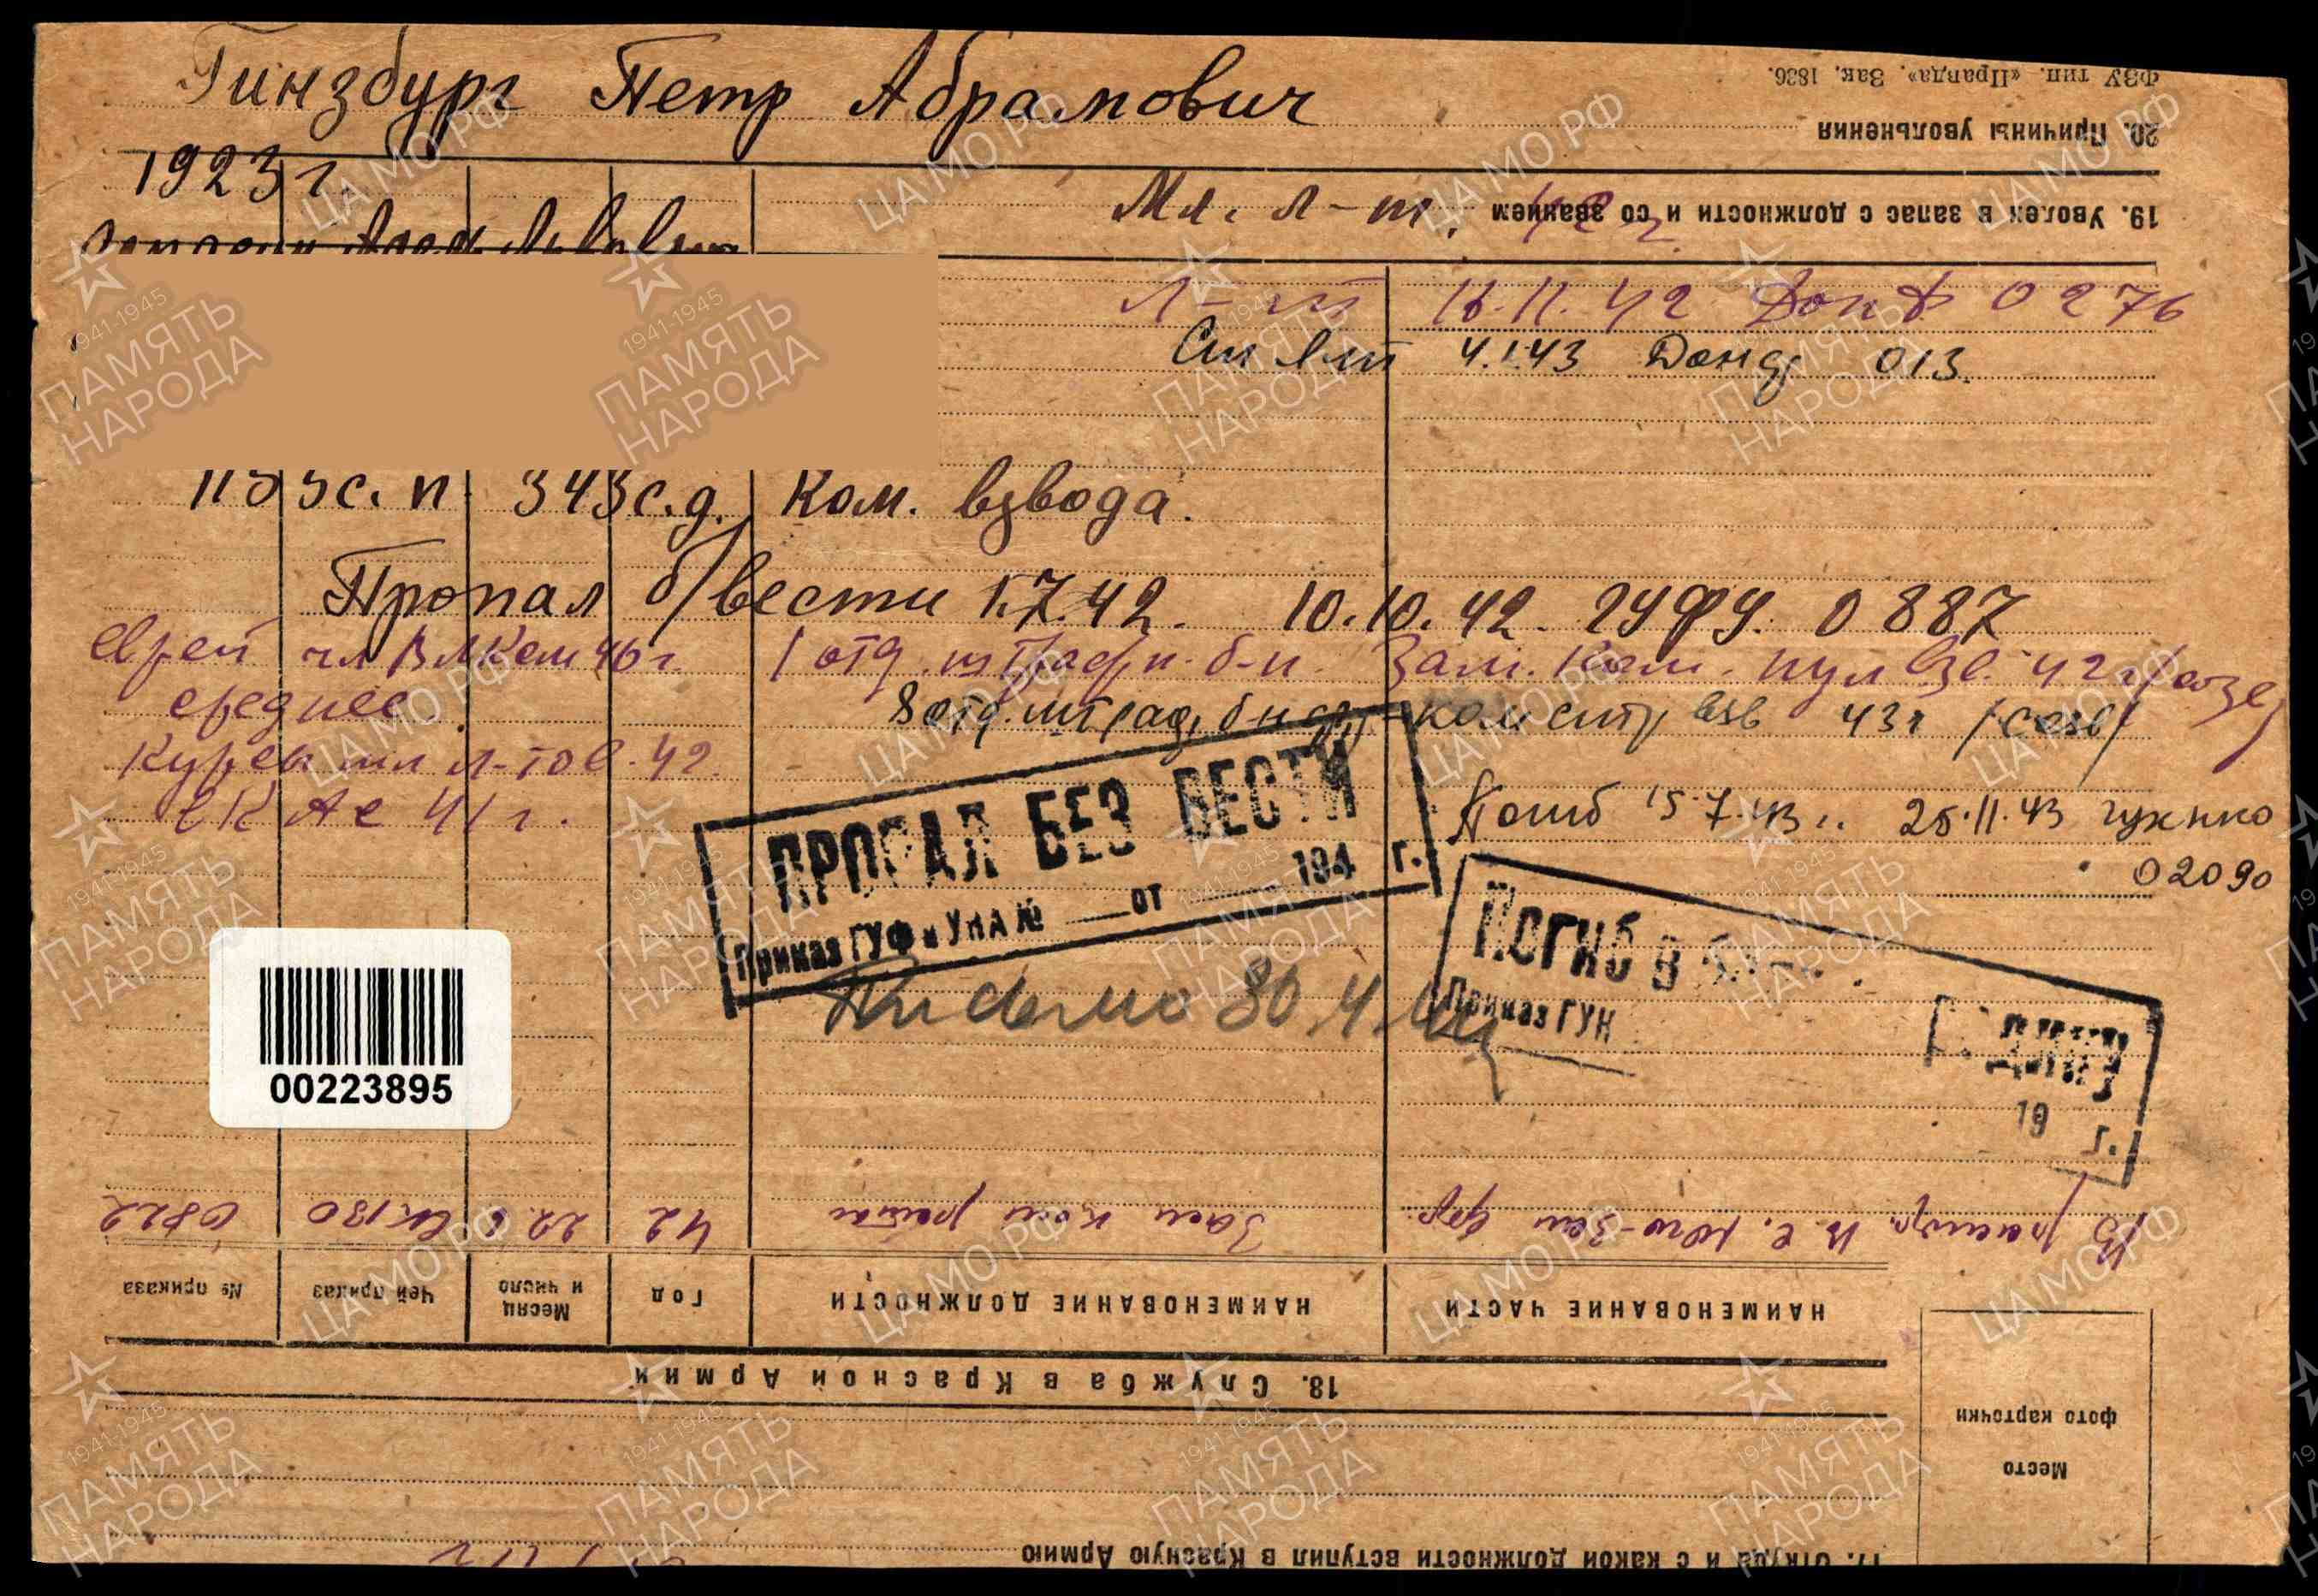 Гинзбург Петр Абрамович
ФЗУ тип. «Правда». Зак. 1836.
20. Причины увольнения
1923 г.
Мл. л-т. 42 г.
19. Уволен в запас с должности и со званием
Л-т 16.11.42 Дон Ф 0276
Ст л-т 4.1.43 Дон ф 013.
с.п. 343 с.д. Ком. взвода.
Пропал б/вести 1.7.42. 10.10.42. ГУФУ. 0887
еврей чл ВЛКСМ 1 отд. штрафн. б-н. Зам. ком. пул взв. 42 г
среднее. 8 отд. штраф, б-н ком стр взв 43 г
Курсы мл л-тов. 42.
в КА с 41 г.
Погиб 15.7.43 г. 25.11.43 гук нко
02090
ПРОПАЛ БЕЗ ВЕСТИ
Приказ ГУФ и УНА № от 194 г.
ПОГИБ В
Приказ ГУК
19 г.
Письмо 30.4.
00223895
0822 130 22.6 42 Зам ком роты В распор. В.С. Юго-Зап фр.
№ приказа
Чей приказ
Месяц и число
Год
НАИМЕНОВАНИЕ ДОЛЖНОСТИ
НАИМЕНОВАНИЕ ЧАСТИ
18. Служба в Красной Армии
Место
фото карточки
17. Откуда и с какой должности вступил в Красную Армию
ЦАМО РФ
1941-1945
ПАМЯТЬ
НАРОДА